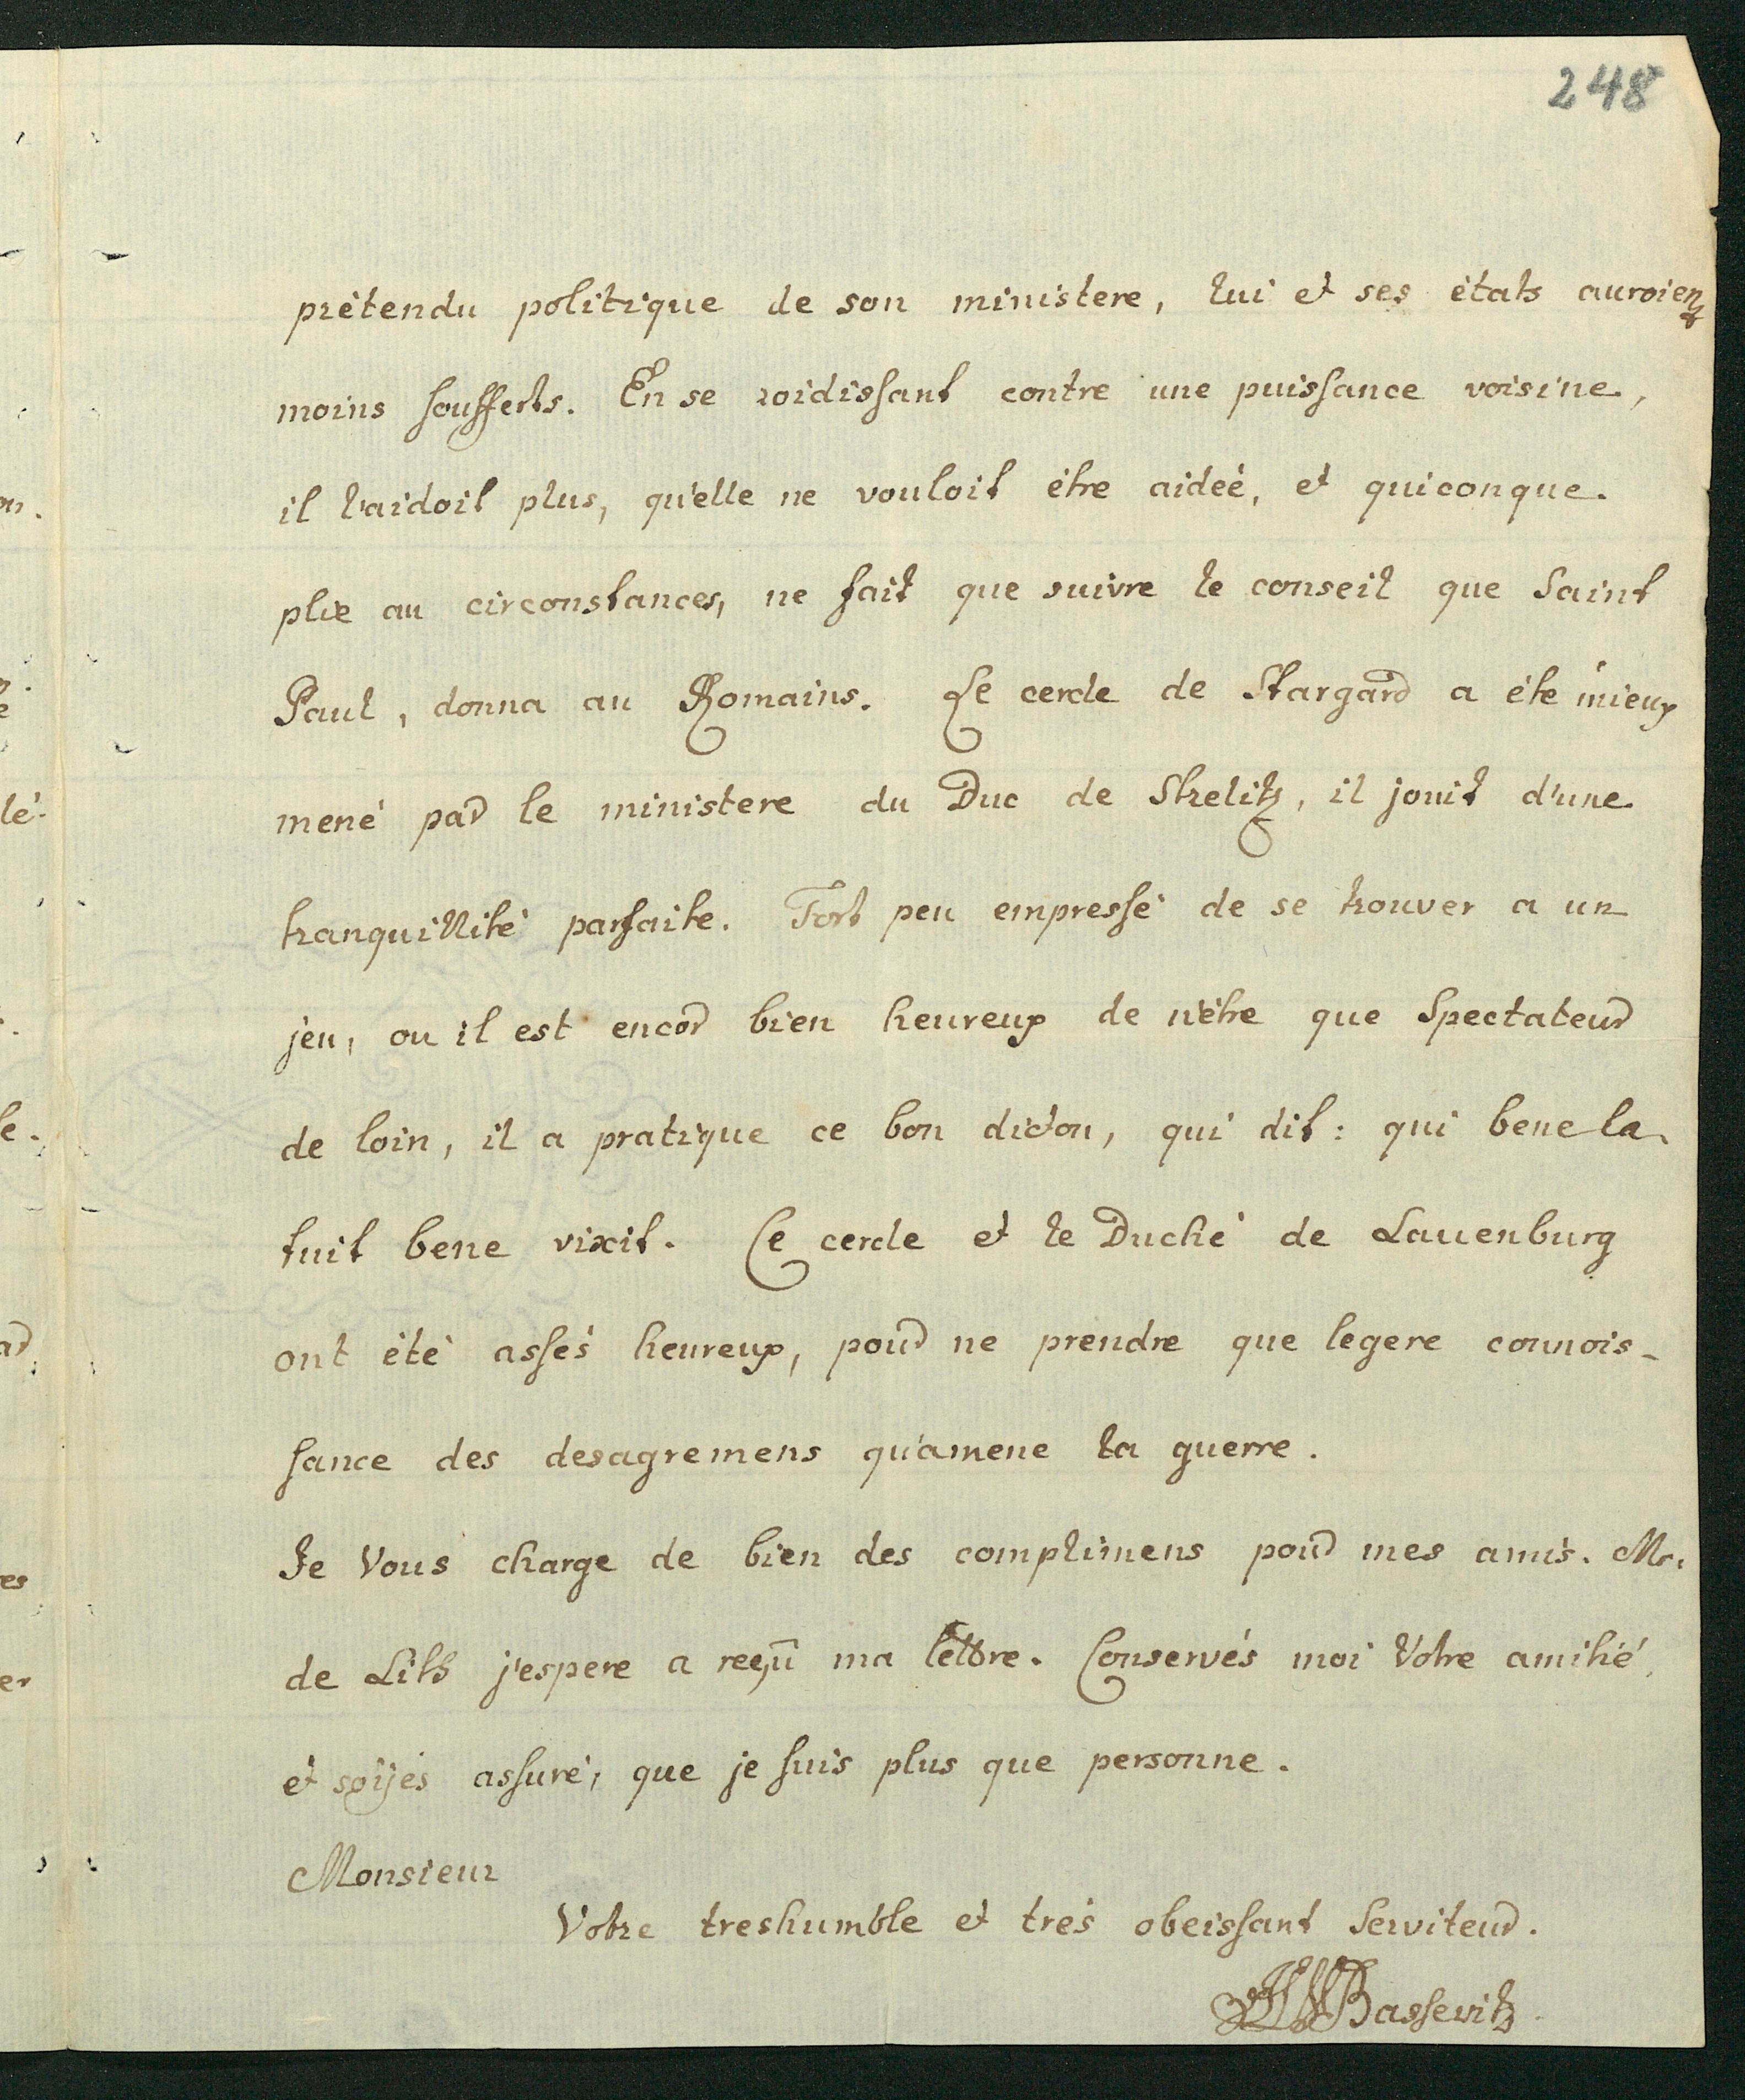 248
prétendu politique de son ministere, lui et ses états auroient
moins soufferts. En se roidissant contre une puissance voisine,
il l'aidoit plus, qu'elle ne vouloit étre aideé, et quiconque
plie au circonstances, ne fait que suivre le conseil que Saint
Paul, donna au Romains. Le cercle de Stargard a éte mieux
mené par le ministere du Duc de Strelitz, il jouit d'une
tranquillité parfaite. Fort peu empressé de se trouver a un
jeu, ou il est encor bien heureux de n'étre que Spectateur
de loin, il a pratique ce bon dicton, qui dit: qui bene la-
tuit bene vixit. Ce cercle et le Duché de Lauenburg
ont été assés heureux, pour ne prendre que legere connois-
sance des desagremens qu'amene la guerre.
Je Vous charge de bien des complimens pour mes amis. Mr.
de Lith j'espere a reçu ma lettre. Conservés moi Votre amitié,
et soijés assuré, que je suis plus que personne.
Monsieur
Votre treshumble et trés obeissant Serviteur.
Bassevitz